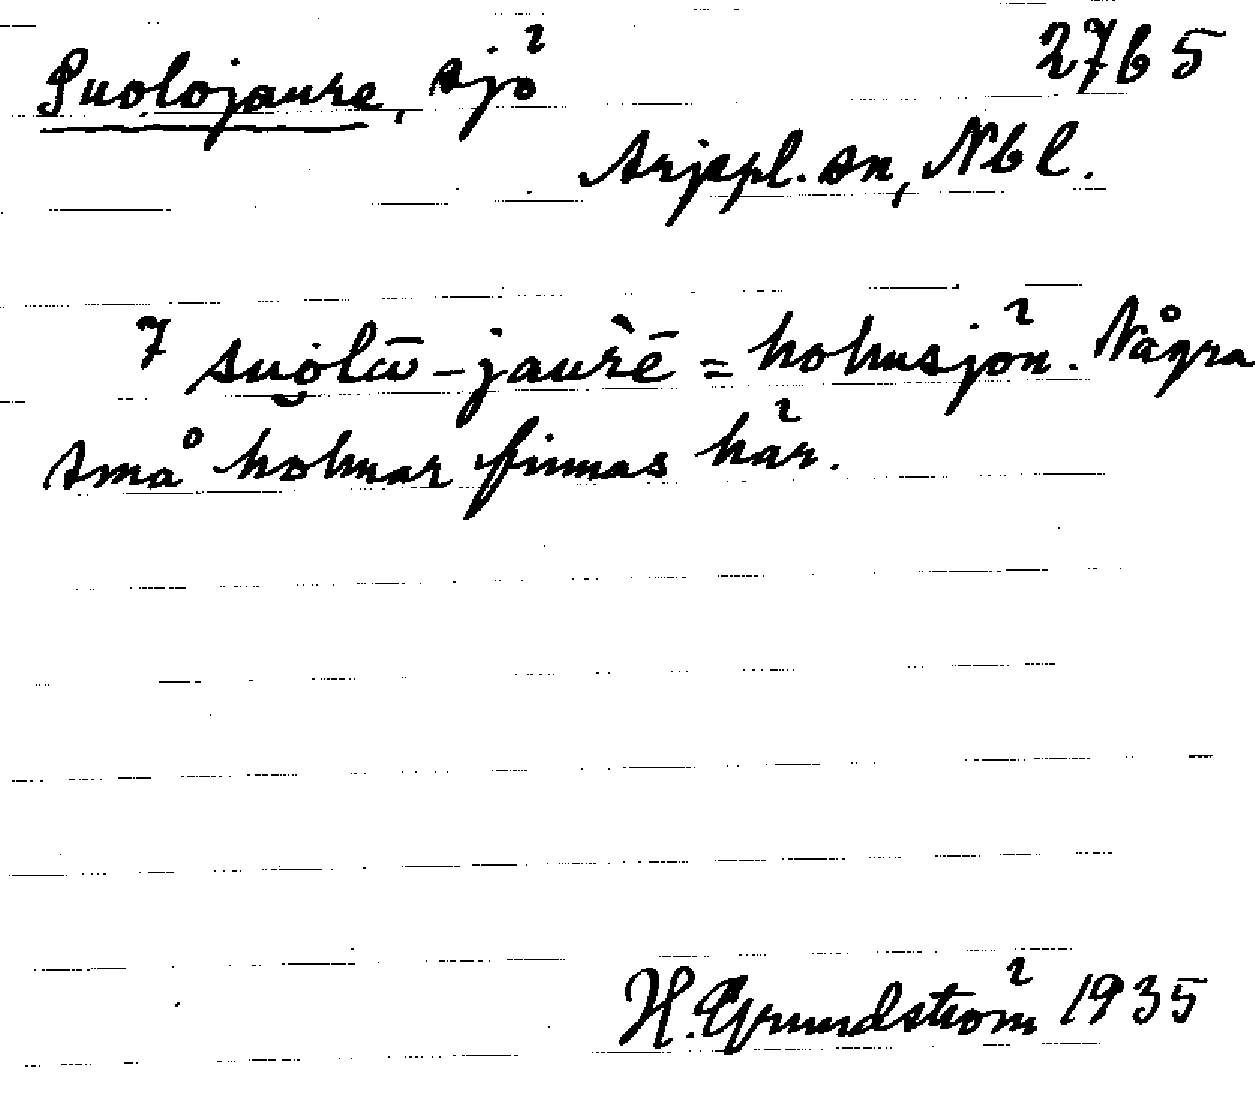 Suolojaure, sjö 2765
Arjepl. sn, Nbl.
suo̯lɷ̄-jau̯rē = holmsjön. Några
små holmar finnas här.
H. Grundström 1935